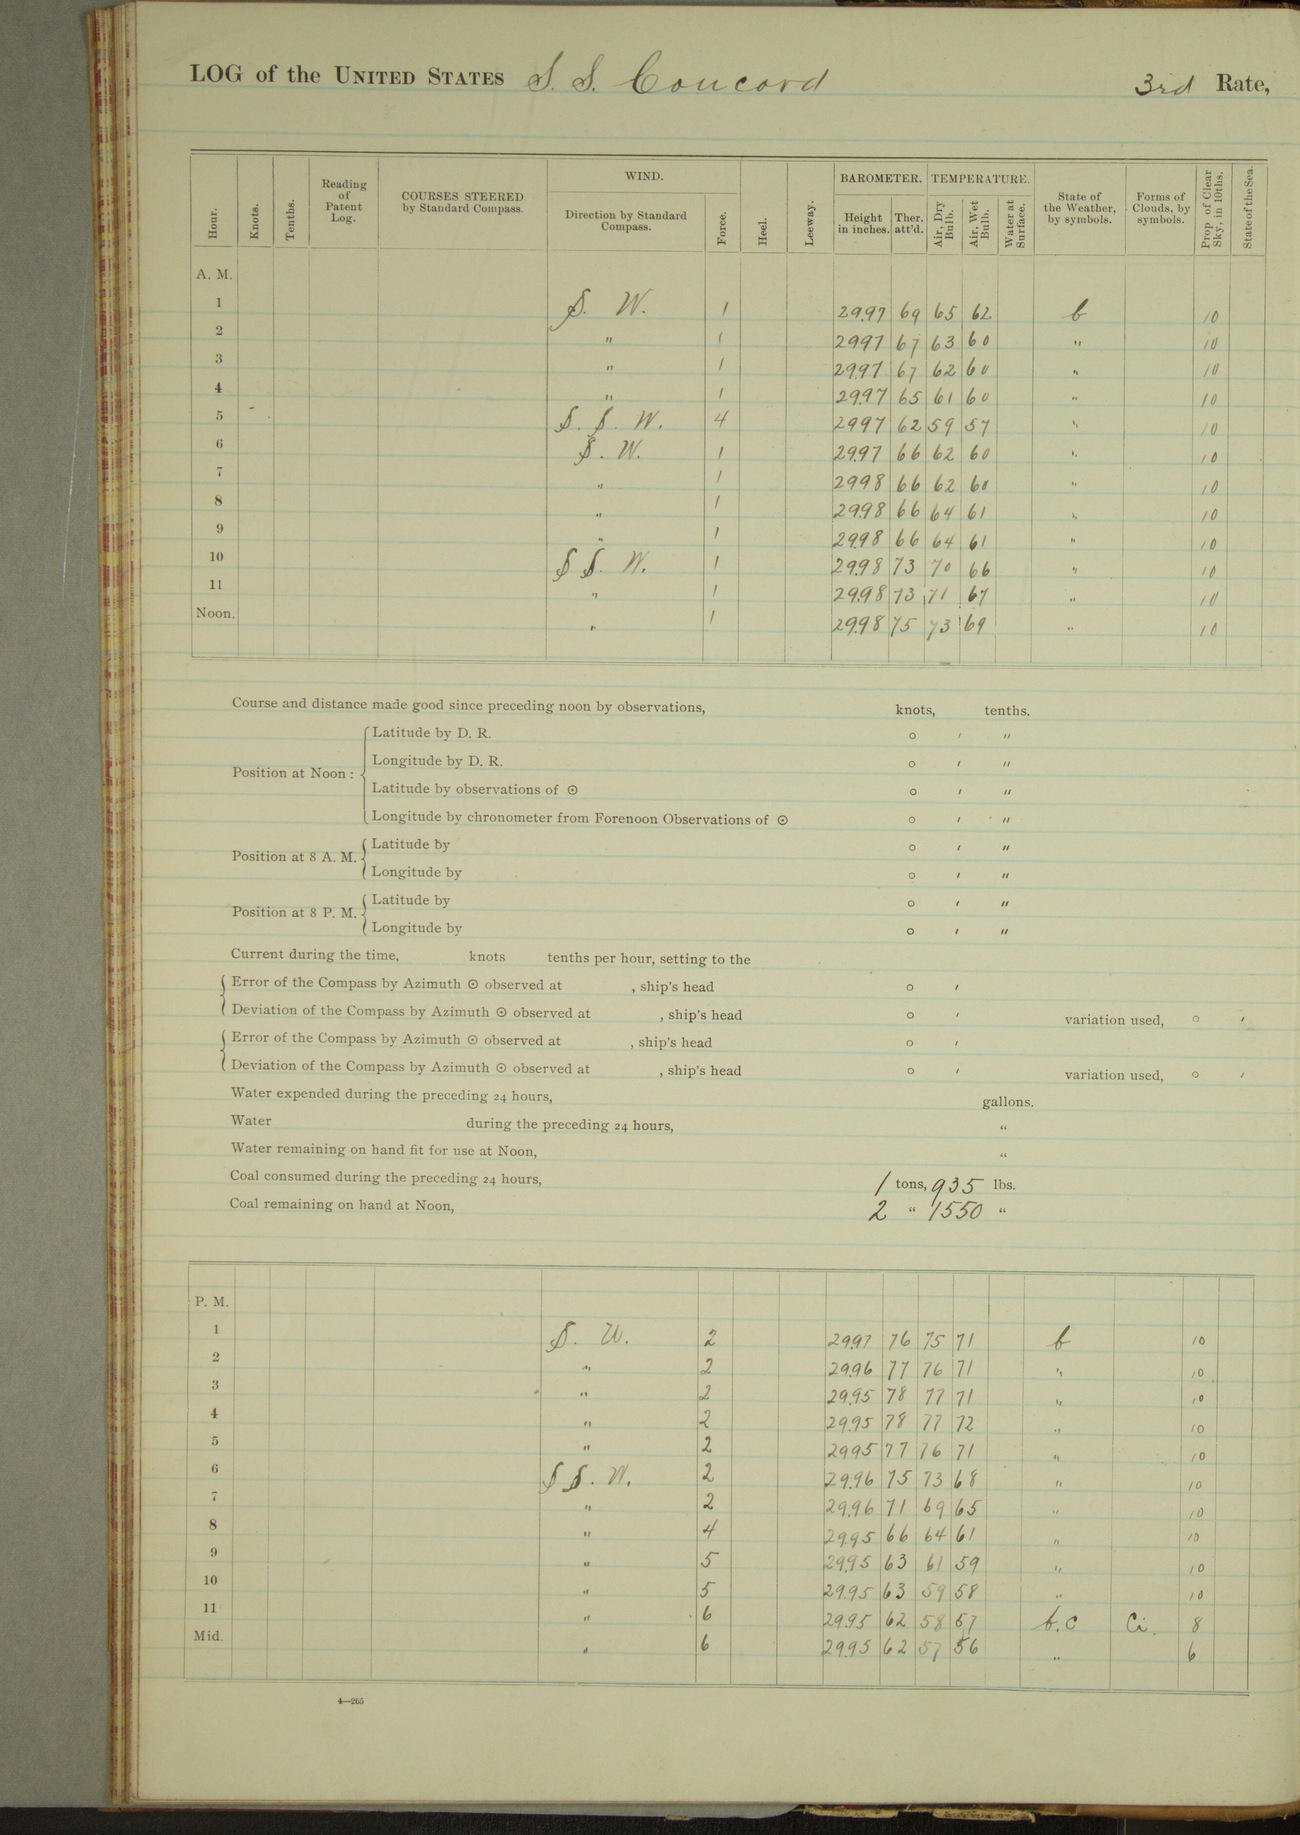 LOG of the UNITED STATES S. S. Concord 3rd Rate,
Hour. Knots. Tenths. Reading of Patent Log. COURSES STEERED by Standard Compass. WIND. Direction by Standard Compass. Force. Heel. Leeway. BAROMETER. Height in inches. Ther. att'd. TEMPERATURE. Air, Dry Bulb. Air, Wet Bulb. Water at Surface. State of the Weather, by symbols. Forms of Clouds, by symbols. Prop. of Clear Sky, in 10ths. State of the Sea.
A. M.
1 S. W. 1 29.97 69 65 62 b 10
2 " 1 29.97 67 63 60 " 10
3 " 1 29.97 67 62 60 " 10
4 " 1 29.97 65 61 60 " 10
5 S. S. W. 4 29.97 62 59 57 " 10
6 S. W. 1 29.97 66 62 60 " 10
7 " 1 29.98 66 62 60 " 10
8 " 1 29.98 66 64 61 " 10
9 " 1 29.98 66 64 61 " 10
10 S S. W. 1 29.98 73 70 66 " 10
11 " 1 29.98 73 71 67 " 10
Noon. " 1 29.98 75 73 69 " 10
Course and distance made good since preceding noon by observations, knots, tenths.
Position at Noon: Latitude by D. R. ° ′ ″
Longitude by D. R. ° ′ ″
Latitude by observations of ⊙ ° ′ ″
Longitude by chronometer from Forenoon Observations of ⊙ ° ′ ″
Position at 8 A. M. Latitude by ° ′ ″
Longitude by ° ′ ″
Position at 8 P. M. Latitude by ° ′ ″
Longitude by ° ′ ″
Current during the time, knots tenths per hour, setting to the
Error of the Compass by Azimuth ⊙ observed at , ship's head ° ′
Deviation of the Compass by Azimuth ⊙ observed at , ship's head ° ′ variation used, ° ′
Error of the Compass by Azimuth ⊙ observed at , ship's head ° ′
Deviation of the Compass by Azimuth ⊙ observed at , ship's head ° ′ variation used, ° ′
Water expended during the preceding 24 hours, gallons.
Water during the preceding 24 hours, "
Water remaining on hand fit for use at Noon, "
Coal consumed during the preceding 24 hours, 1 tons, 935 lbs.
Coal remaining on hand at Noon, 2 " 1550 "
P. M.
1 S. W. 2 29.97 76 75 71 b 10
2 " 2 29.96 77 76 71 " 10
3 " 2 29.95 78 77 71 " 10
4 " 2 29.95 78 77 72 " 10
5 " 2 29.95 77 76 71 " 10
6 S S. W. 2 29.96 75 73 68 " 10
7 " 2 29.96 71 69 65 " 10
8 " 4 29.95 66 64 61 " 10
9 " 5 29.95 63 61 59 " 10
10 " 5 29.95 63 59 58 " 10
11 " 6 29.95 62 58 57 b. c Ci. 8
Mid. " 6 29.95 62 57 56 " 6
4—265